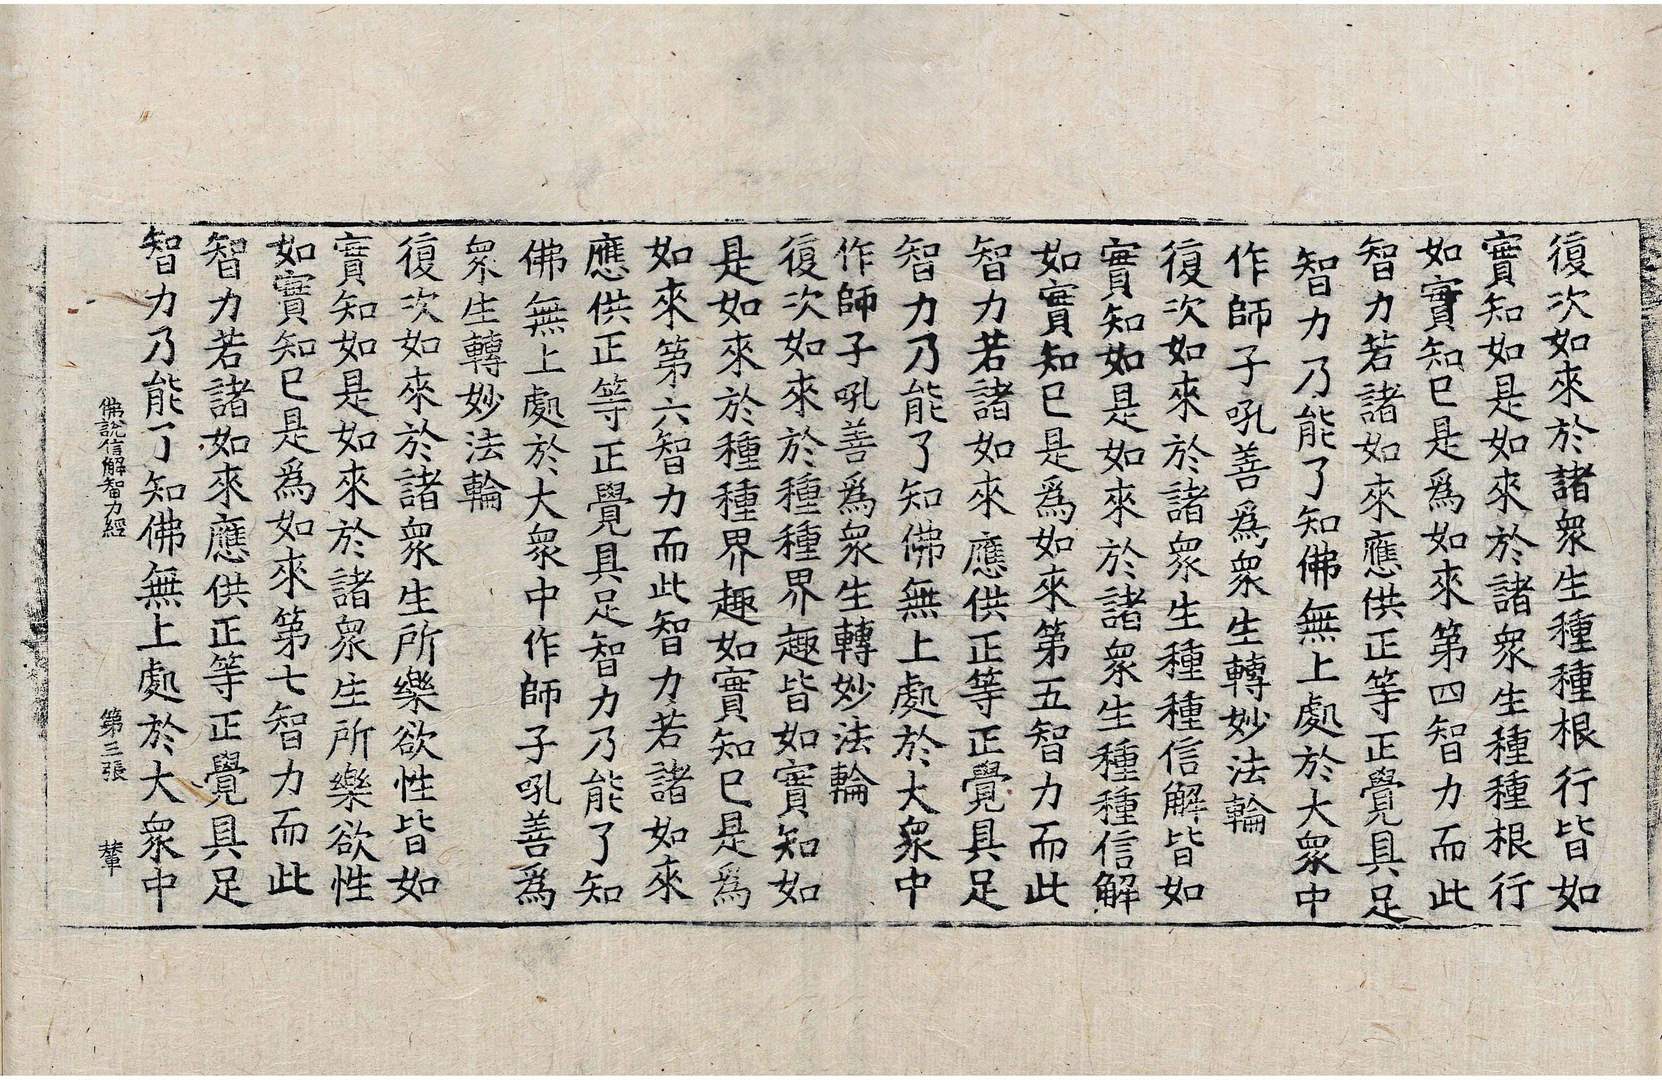 復次如來於諸衆生種種根行皆如
實知如是如來於諸衆生種種根行
如實知已是爲如來第四智力而此
智力若諸如來應供正等正覺具足
智力乃能了知佛無上處於大衆中
作師子吼善爲衆生轉妙法輪
復次如來於諸衆生種種信解皆如
實知如是如來於諸衆生種種信解
如實知已是爲如來第五智力而此
智力若諸如來應供正等正覺具足
智力乃能了知佛無上處於大衆中
作師子吼善爲衆生轉妙法輪
復次如來於種種界趣皆如實知如
是如來於種種界趣如實知已是爲
如來第六智力而此智力若諸如來
應供正等正覺具足智力乃能了知
佛無上處於大衆中作師子吼善爲
衆生轉妙法輪
復次如來於諸衆生所樂欲性皆如
實知如是如來於諸衆生所樂欲性
如實知已是爲如來第七智力而此
智力若諸如來應供正等正覺具足
智力乃能了知佛無上處於大衆中
佛說信解智力經 第三張 輦